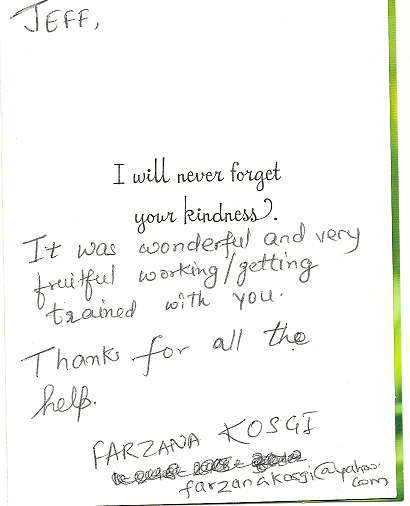 JEFF,
I will never forget
your kindness.
It was wonderful and very
fruitful working/getting
trained with you.
Thanks for all the
help.
FARZANA KOSGI
farzanakosgi@yahoo.
com